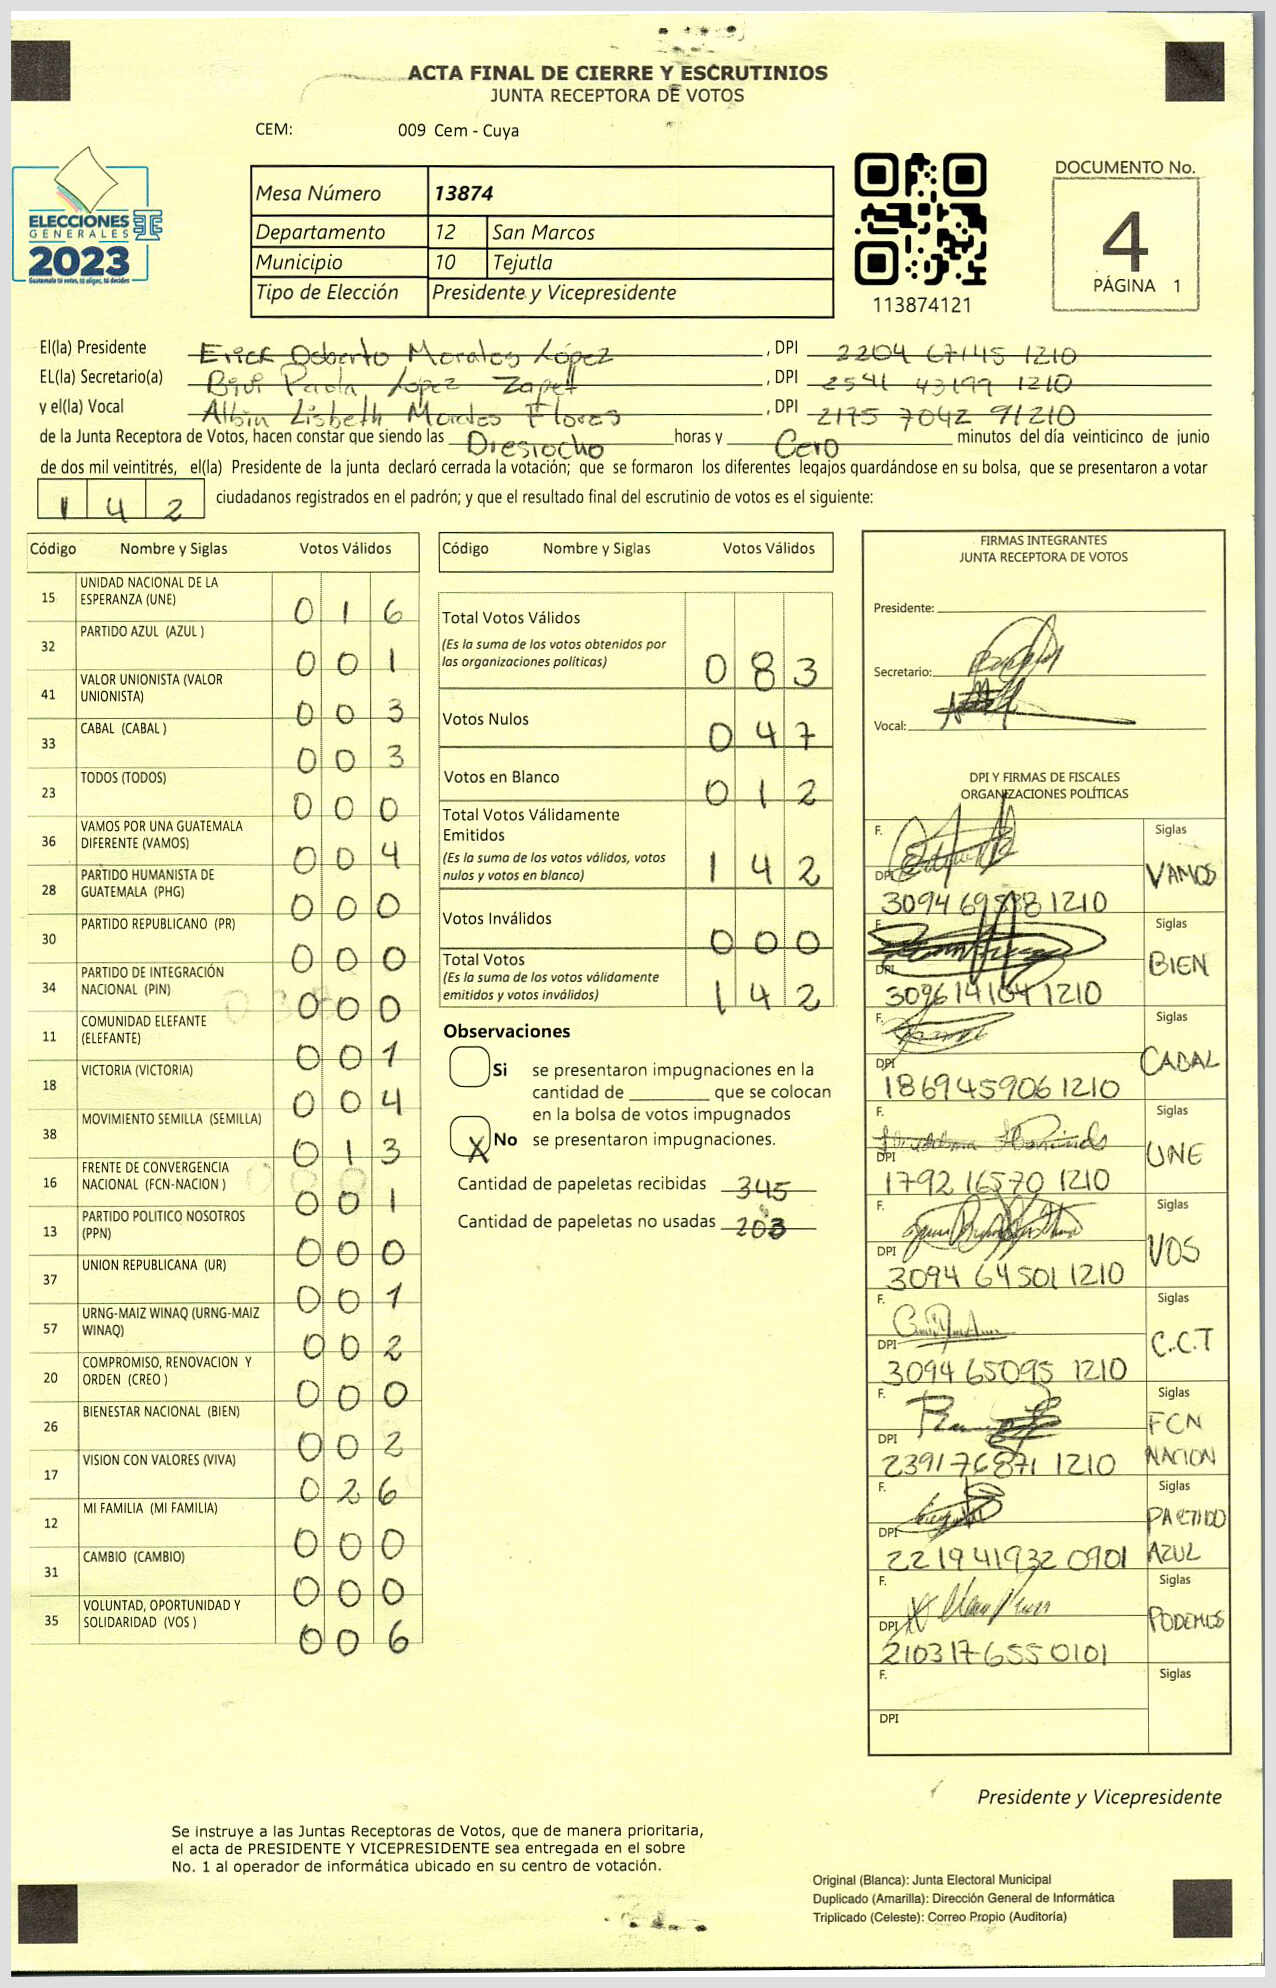 ACTA FINAL DE CIERRE Y ESCRUTINIOS
JUNTA RECEPTORA DE VOTOS
CEM: 009 Cem - Cuya
ELECCIONES
GENERALES
2023
Mesa Número 13874
Departamento 12 San Marcos
Municipio 10 Tejutla
Tipo de Elección Presidente y Vicepresidente
113874121
DOCUMENTO No.
4
PÁGINA 1
El(la) Presidente Erick Osberto Morales López, DPI 2204 67145 1210
EL(la) Secretario(a) Paola López Zapet, DPI 2541 43199 1210
y el(la) Vocal Albin Lisbeth Morales Flores, DPI 2175 7042 91210
de la Junta Receptora de Votos, hacen constar que siendo las Diesiocho horas y Cero minutos del día veinticinco de junio
de dos mil veintitrés, el(la) Presidente de la junta declaró cerrada la votación; que se formaron los diferentes legajos guardándose en su bolsa, que se presentaron a votar
142 ciudadanos registrados en el padrón; y que el resultado final del escrutinio de votos es el siguiente:
Código Nombre y Siglas Votos Válidos
15 UNIDAD NACIONAL DE LA ESPERANZA (UNE) 016
32 PARTIDO AZUL (AZUL ) 001
41 VALOR UNIONISTA (VALOR UNIONISTA) 003
33 CABAL (CABAL ) 003
23 TODOS (TODOS) 000
36 VAMOS POR UNA GUATEMALA DIFERENTE (VAMOS) 004
28 PARTIDO HUMANISTA DE GUATEMALA (PHG) 000
30 PARTIDO REPUBLICANO (PR) 000
34 PARTIDO DE INTEGRACIÓN NACIONAL (PIN) 000
11 COMUNIDAD ELEFANTE (ELEFANTE) 001
18 VICTORIA (VICTORIA) 004
38 MOVIMIENTO SEMILLA (SEMILLA) 013
16 FRENTE DE CONVERGENCIA NACIONAL (FCN-NACION ) 001
13 PARTIDO POLITICO NOSOTROS (PPN) 000
37 UNION REPUBLICANA (UR) 001
57 URNG-MAIZ WINAQ (URNG-MAIZ WINAQ) 002
20 COMPROMISO, RENOVACION Y ORDEN (CREO ) 000
26 BIENESTAR NACIONAL (BIEN) 002
17 VISION CON VALORES (VIVA) 026
12 MI FAMILIA (MI FAMILIA) 000
31 CAMBIO (CAMBIO) 000
35 VOLUNTAD, OPORTUNIDAD Y SOLIDARIDAD (VOS ) 006
Código Nombre y Siglas Votos Válidos
Total Votos Válidos 083
(Es la suma de los votos obtenidos por
las organizaciones políticas)
Votos Nulos 047
Votos en Blanco 012
Total Votos Válidamente
Emitidos 142
(Es la suma de los votos válidos, votos
nulos y votos en blanco)
Votos Inválidos 000
Total Votos 142
(Es la suma de los votos válidamente
emitidos y votos inválidos)
Observaciones
Si se presentaron impugnaciones en la
cantidad de ________ que se colocan
en la bolsa de votos impugnados
X No se presentaron impugnaciones.
Cantidad de papeletas recibidas 345
Cantidad de papeletas no usadas 203
FIRMAS INTEGRANTES
JUNTA RECEPTORA DE VOTOS
Presidente:
Secretario:
Vocal:
DPI Y FIRMAS DE FISCALES
ORGANIZACIONES POLÍTICAS
F. Siglas
DPI 3094 69588 1210 VAMOS
F. Siglas
DPI 3096 14104 1210 BIEN
F. Siglas
DPI 1869459061210 CABAL
F. Siglas
DPI 1792 16570 1210 UNE
F. Siglas
DPI 3094 64501 1210 VOS
F. Siglas
DPI 3094 65095 1210 C.C.T
F. Siglas
DPI 239176871 1210 FCN NACION
F. Siglas
DPI 221941932 0901 PARTIDO AZUL
F. Siglas
DPI 210317655 0101 PODEMOS
F. Siglas
DPI
Presidente y Vicepresidente
Se instruye a las Juntas Receptoras de Votos, que de manera prioritaria,
el acta de PRESIDENTE Y VICEPRESIDENTE sea entregada en el sobre
No. 1 al operador de informática ubicado en su centro de votación.
Original (Blanca): Junta Electoral Municipal
Duplicado (Amarilla): Dirección General de Informática
Triplicado (Celeste): Correo Propio (Auditoría)